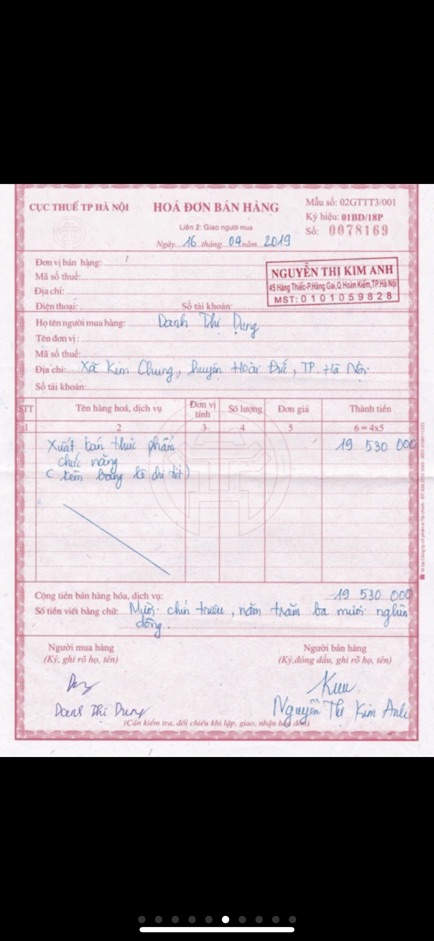 CỤC THUẾ TP HÀ NỘI
HOÁ ĐƠN BÁN HÀNG
Liên 2: Giao người mua
Ngày 16 tháng 04 năm 2019
Mẫu số: 02GTTT3/001
Ký hiệu: 01BD/18P
Số: 0078169
Đơn vị bán hàng:
Mã số thuế:
Địa chỉ:
Điện thoại: Số tài khoản:
NGUYỄN THỊ KIM ANH
45 Hàng Thiếc-P.Hàng Gai,Q.Hoàn Kiếm,TP.Hà Nội
MST: 0101059828
Họ tên người mua hàng: Danh Thị Dung
Tên đơn vị:
Mã số thuế:
Địa chỉ: Xã Kim Chung, huyện Hoài Đức, TP. Hà Nội
Số tài khoản:
STT Tên hàng hoá, dịch vụ Đơn vị tính Số lượng Đơn giá Thành tiền
1 2 3 4 5 6 = 4x5
Xuất bán thực phẩm 19 530 000
chức năng
(kèm bảng kê chi tiết)
Cộng tiền bán hàng hóa, dịch vụ: 19 530 000
Số tiền viết bằng chữ: Mười chín triệu, năm trăm ba mươi nghìn
đồng.
Người mua hàng
(Ký, ghi rõ họ, tên)
Danh Thị Dung
Người bán hàng
(Ký,đóng dấu, ghi rõ họ, tên)
Nguyễn Thị Kim Anh
(Cần kiểm tra, đối chiếu khi lập, giao, nhận hóa đơn)